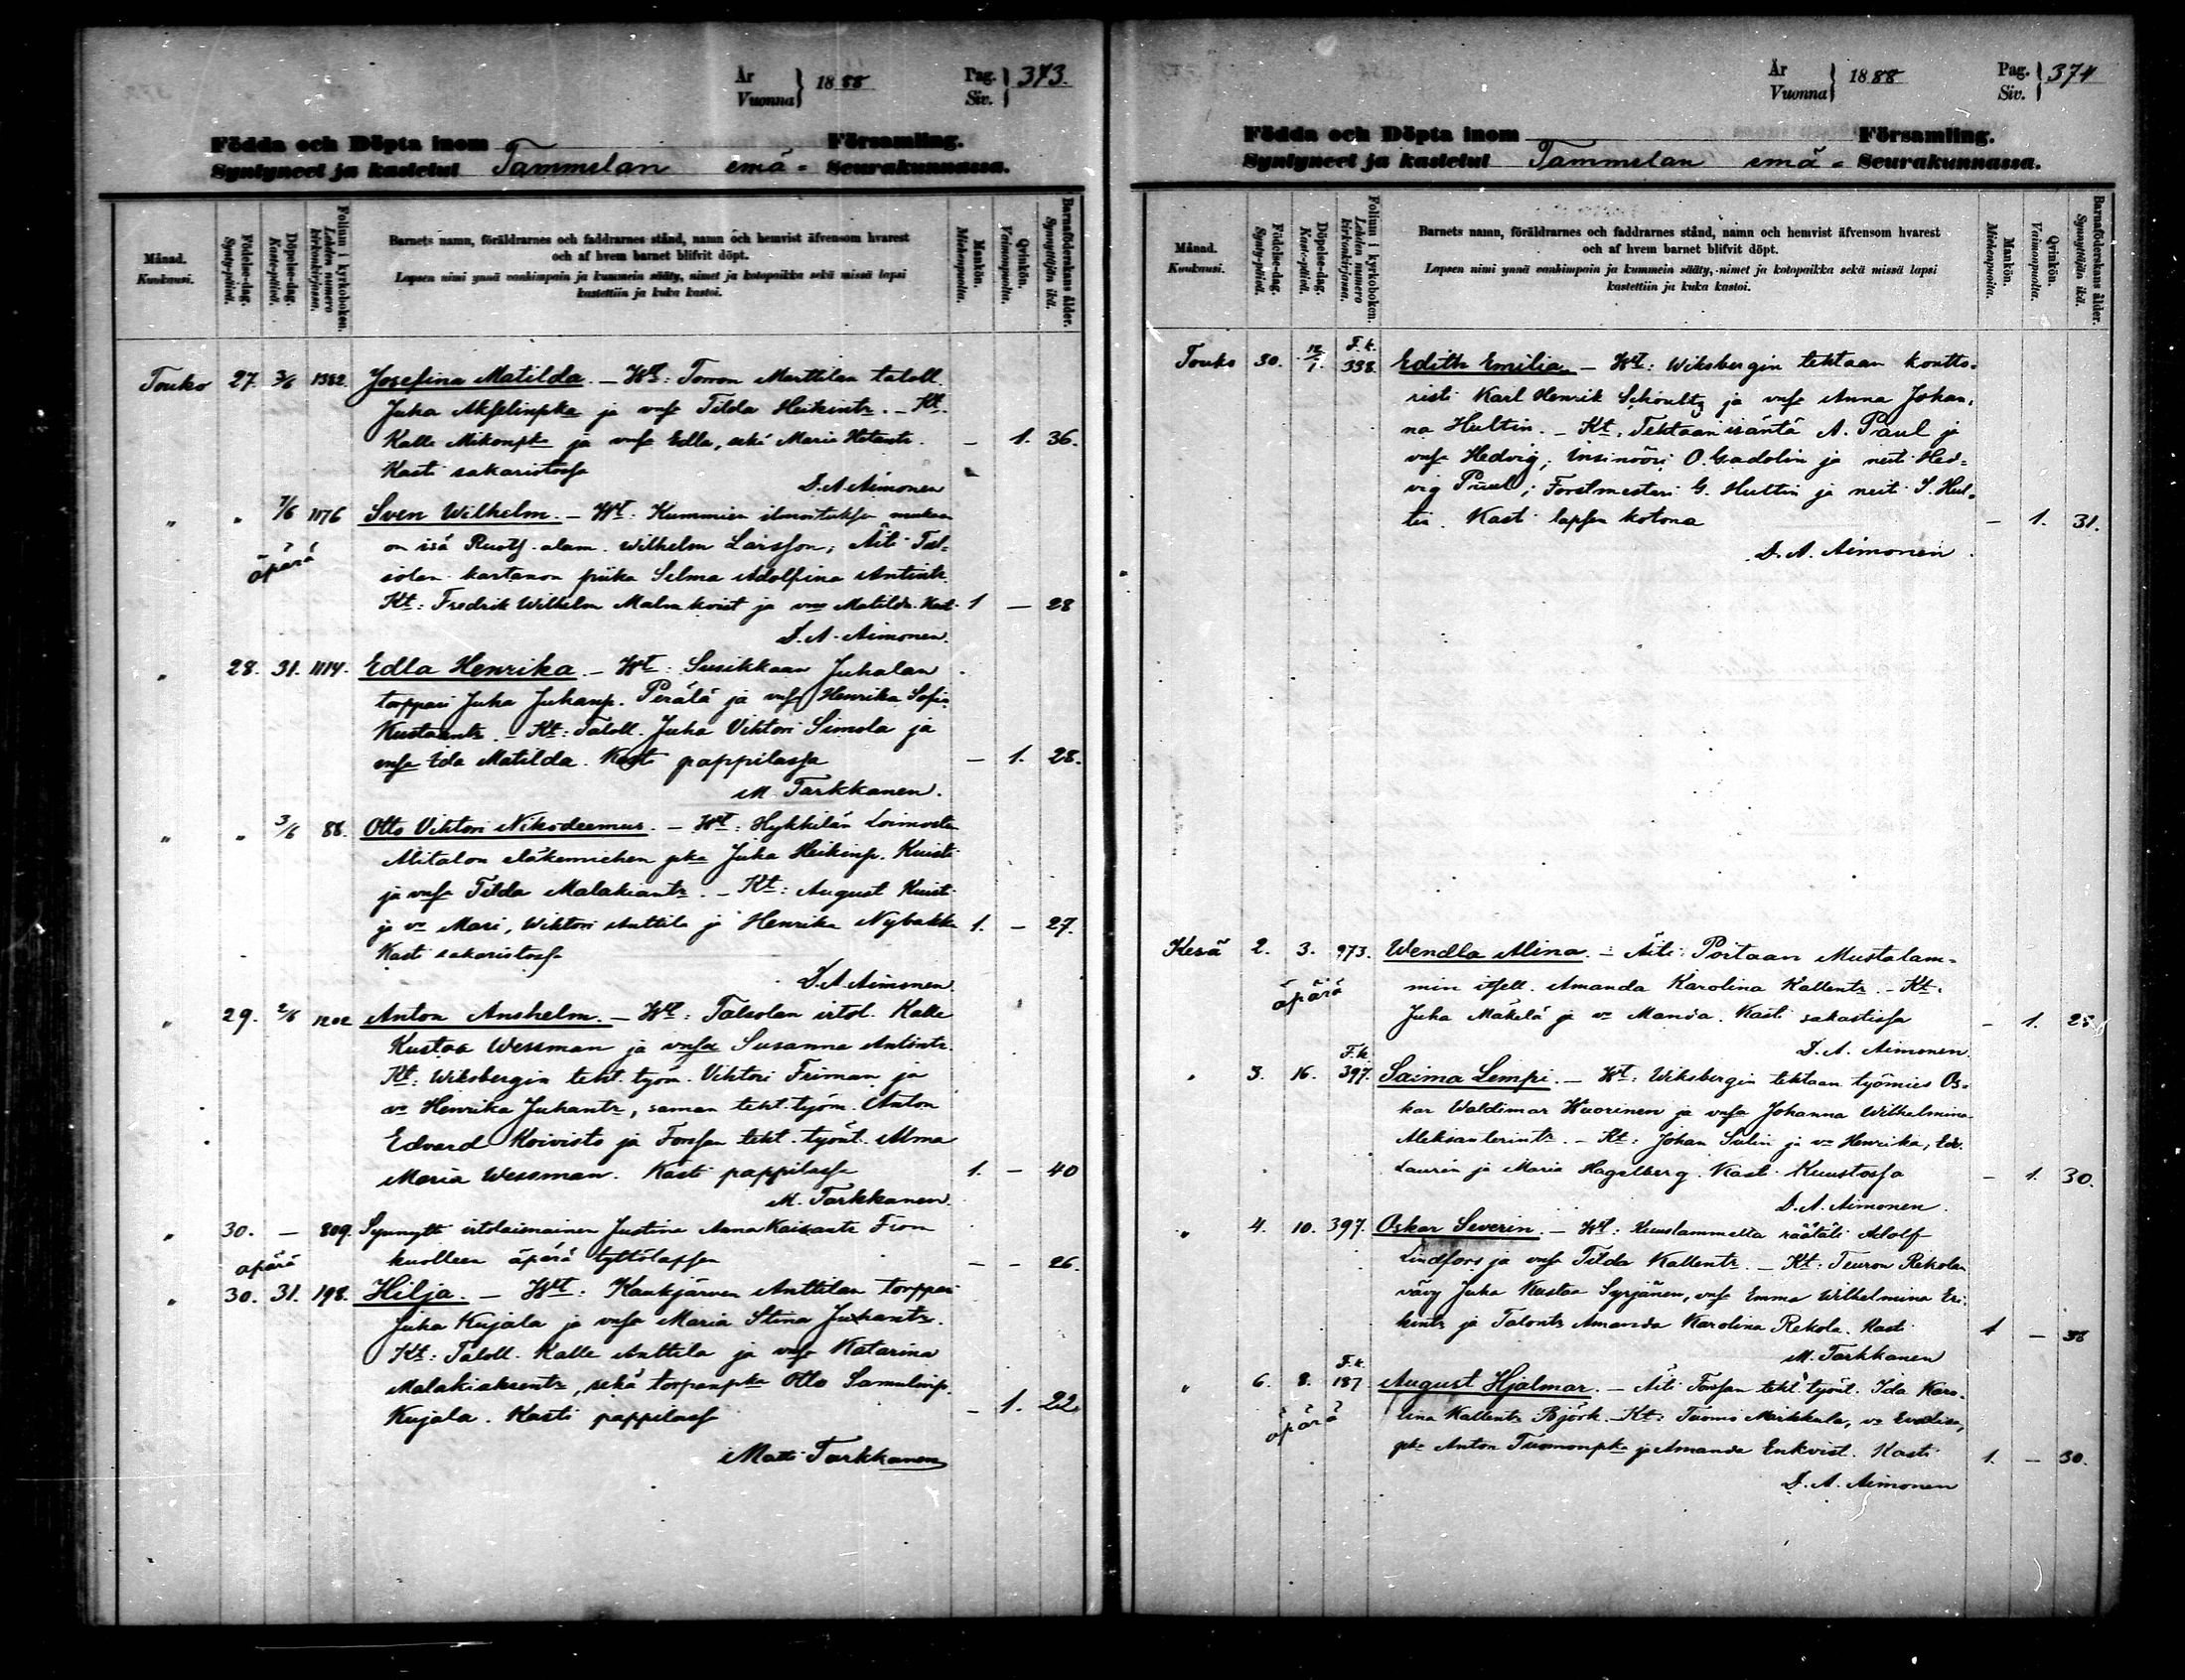 År
Vuonna } 1888
Pag.
Siv. } 373.
Födda och Döpta inom Församling.
Syntyneet ja kastetut Tammelan emä- Seurakunnassa.
Månad.
Kuukausi.
Födelse-dag.
Synty-päivä.
Döpelse-dag.
Kaste-päivä.
Folium i kyrkoboken.
Lehden numero kirkonkirjassa.
Barnets namn, föräldrarnes och faddrarnes stånd, namn och hemvist äfvensom hvarest
och af hvem barnet blifvit döpt.
Lapsen nimi ynnä vanhimpain ja kummein sääty, nimet ja kotopaikka sekä missä lapsi
kastettiin ja kuka kastoi.
Mankön.
Miehenpuolta.
Qvinkön.
Vaimonpuolta.
Barnaföderskans ålder.
Synnyttäjän ikä.
Touko 27. 3/6 1382. Josefina Matilda. – Wt: Torron Marttilan taloll.
Juha Akselinpka ja vnsa Tilda Heikintr. – Kt.
Kalle Mikonpka ja vnsa Edla, sekä Maria . – 1. 36.
Kasti sakaristossa
D. A. Aimonen
" " 7/6 1176 Sven Wilhelm. – Wt: Kummien ilmoituksen mukaan
äpärä on isä Ruots. alam. Wilhelm Larsson; Äiti Tal-
solan kartanon piika Selma Adolfina Antintr.
Kt: Fredrik Wilhelm Malmkvist ja vmo Matilda. Kast. 1 – 28
D. A. Aimonen.
" 28. 31. 1114. Edla Henrika. – Wt: Susikkaan Juhalan
torppari Juha Juhanp. Perälä ja vnsa Henrika Sofia
Kustaantr. – Kt: Taloll. Juha Viktori Simola ja
vnsa Ida Matilda. Kasti pappilassa – 1. 28.
M. Tarkkanen.
" " 3/6 88. Otto Viktori Nikodeemus. – Wt: Hykkilän
Alitalon eläkemiehen pka Juha Heikinp. Kuisti
ja vnsa Tilda Malakiantr. – Kt: August Kuisti
ja vo Mari, Wiktori Anttila ja Henrika Nybakka 1. – 27.
Kasti sakaristossa
D. A. Aimonen.
" 29. 2/6 1202 Anton Anshelm. – Wt: Talsolan irtol. Kalle
Kustaa Wessman ja vnsa Susanna Antintr.
Kt: Wiksbergin teht. työm. Viktori Friman ja
vo Henrika Juhantr, saman teht. työm. Anton
Edvard Koivisto ja Forssan teht. työnt. Alma
Maria Wessman. Kasti pappilassa 1. – 40
M. Tarkkanen.
" 30. – 809. Synnytti irtolaisnainen Justina Anna Kaisantr From
äpärä kuolleen äpärä tyttölapsen – – 26.
" 30. 31. 198. Hilja. – Wt: Kaukjärven Anttilan torppari
Juha Kujala ja vnsa Maria Stina Juhantr.
Kt: Taloll. Kalle Anttila ja vnsa Katarina
Malakiaksentr, sekä torpanpka Otto Samulinp.
Kujala. Kasti pappilassa – 1. 22.
Matti Tarkkanen
År
Vuonna } 1888
Pag.
Siv. } 374
Födda och Döpta inom Församling.
Syntyneet ja kastetut Tammelan emä- Seurakunnassa.
Månad.
Kuukausi.
Födelse-dag.
Synty-päivä.
Döpelse-dag.
Kaste-päivä.
Folium i kyrkoboken.
Lehden numero kirkonkirjassa.
Barnets namn, föräldrarnes och faddrarnes stånd, namn och hemvist äfvensom hvarest
och af hvem barnet blifvit döpt.
Lapsen nimi ynnä vanhimpain ja kummein sääty, nimet ja kotopaikka sekä missä lapsi
kastettiin ja kuka kastoi.
Mankön.
Miehenpuolta.
Qvinkön.
Vaimonpuolta.
Barnaföderskans ålder.
Synnyttäjän ikä.
Touko 30. 12/7. F.k. 338. Edith Emilia. – Wt: Wiksbergin tehtaan kontto-
risti Karl Henrik Schoultz ja vnsa Anna Johan-
na Hultin. – Kt: Tehtaan isäntä A. Paul ja
vnsa Hedvig; Insinööri O. Gadolin ja neiti Hed-
vig Paul; Forstmestari G. Hultin ja neiti S. Hul-
tin. Kasti lapsen kotona – 1. 31.
D. A. Aimonen.
Kesä 2. 3. 973. Wendla Alina. – Äiti: Portaan Mustalam-
äpärä min itsell. Amanda Karolina Kallentr. – Kt:
Juha Mäkelä ja vo Manda. Kasti sakastissa – 1. 25
D. A. Aimonen.
" 3. 16. F.k. 397. Saima Lempi. – Wt: Wiksbergin tehtaan työmies Os-
kar Waldimar Wuorinen ja vnsa Johanna Wilhelmina
Aleksanterintr. – Kt: Johan Sulin ja vo Henrika, Edv.
Laurin ja Maria Hagelberg. Kasti Kuustossa – 1. 30.
D. A. Aimonen.
" 4. 10. 397. Oskar Severin. – Wt: Kuuslammella räätäli Adolf
Lindfors ja vnsa Tilda Kallentr. – Kt: Teuron Rekolan
vävy Juha Kustaa Syrjänen, vnsa Emma Wilhelmina Eri-
kintr ja Talontr Amanda Karolina Rekola. Kasti 1 – 36
M. Tarkkanen
" 6. 8. F.k. 187 August Hjalmar. – Äiti Forssan teht. työnt. Ida Karo-
äpärä lina Kallentr Björk. – Kt: Tuomo Markkula, vo Evalisa,
pka Anton Tuomonpka ja Amanda Enkvist. Kasti 1. – 30.
D. A. Aimonen